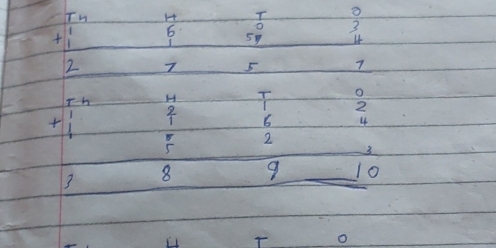 Th H T O
1 6 0 3
+ 1 1 5 4
2 7 5 7
Th H T O
1 2 1 2
+ 1 1 6 4
1 5 2 3
3 8 9 10
Th H T O